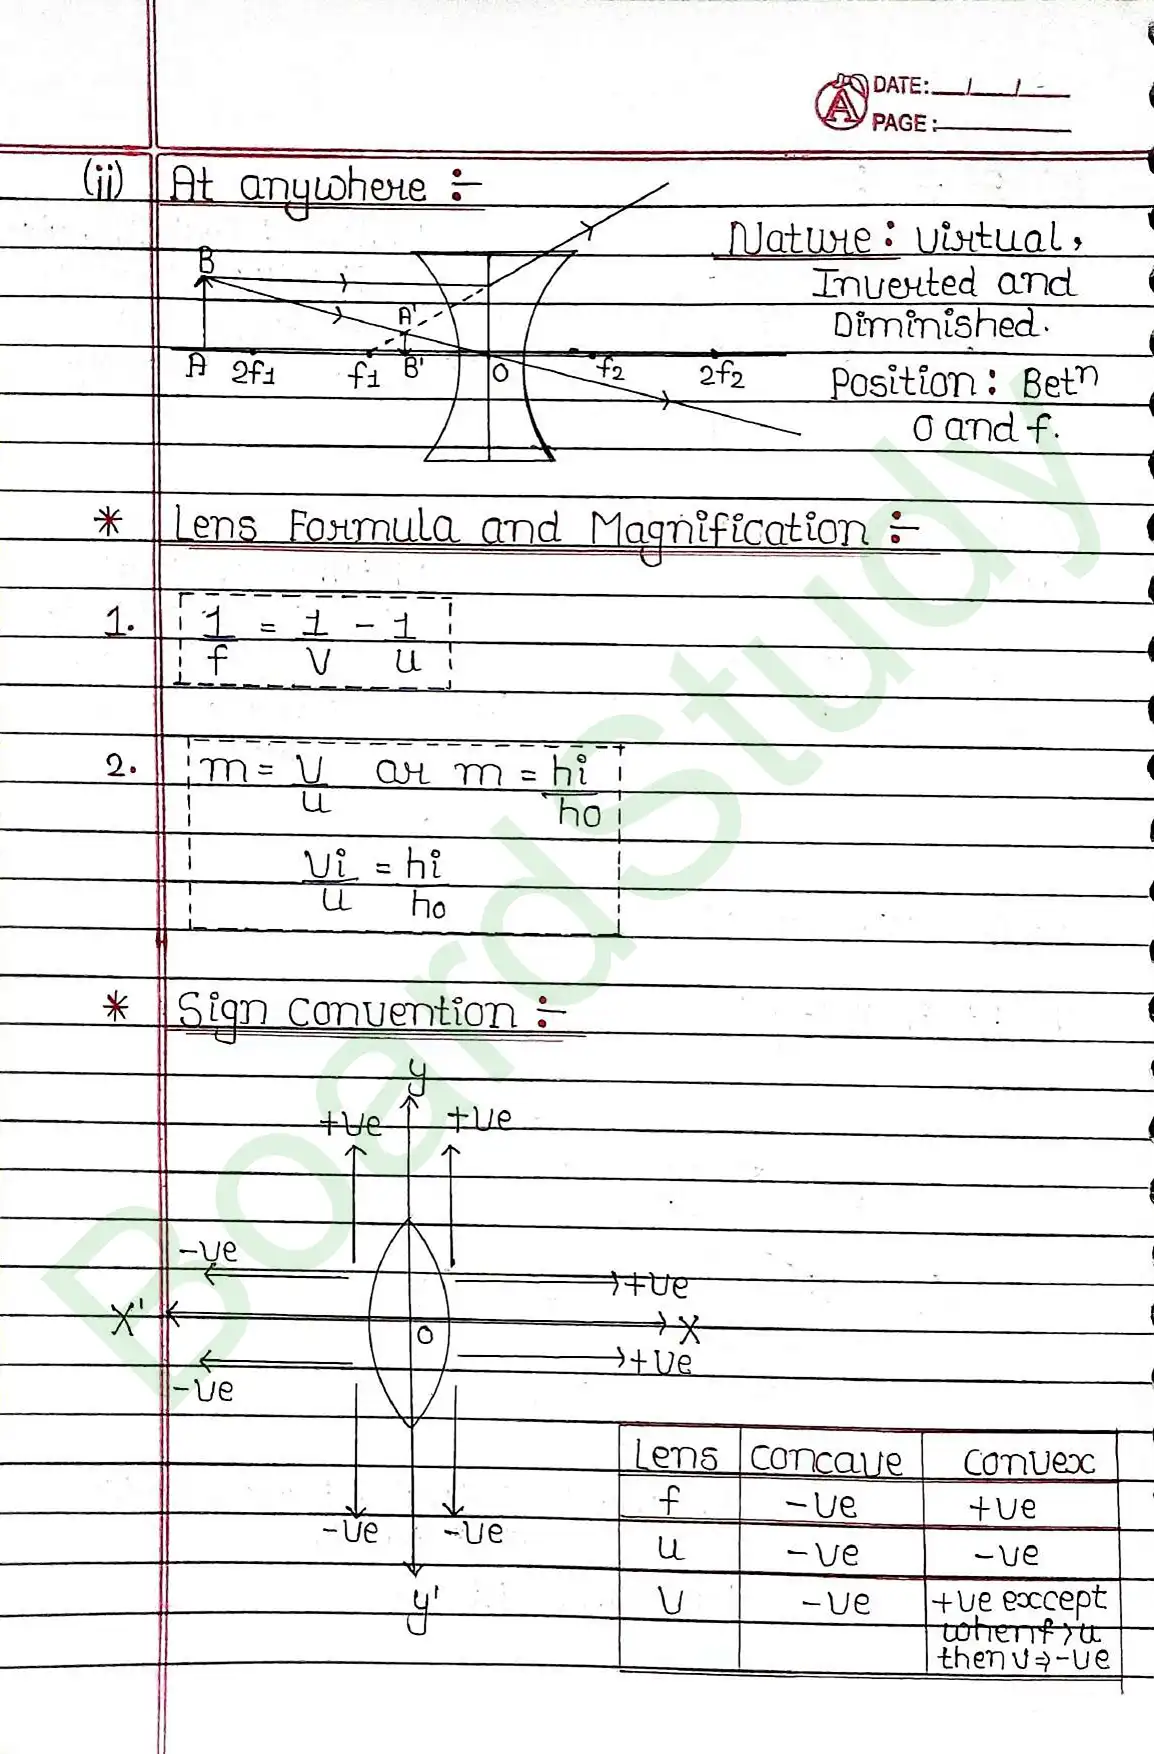 DATE: / /
PAGE:
(ii) At anywhere :-
Nature: virtual,
Inverted and
Diminished.
Position: Betⁿ
O and f.
B
A'
A 2f1 f1 B' O f2 2f2
* Lens Formula and Magnification :-
1. 1/f = 1/v - 1/u
2. m = v/u or m = hi/ho
vi/u = hi/ho
* Sign Convention :-
y
+ve +ve
-ve
+ve
X' O X
+ve
-ve
-ve -ve
y'
Lens Concave Convex
f -ve +ve
u -ve -ve
v -ve +ve except
when f > u
then v ⇒ -ve
BoardStudy